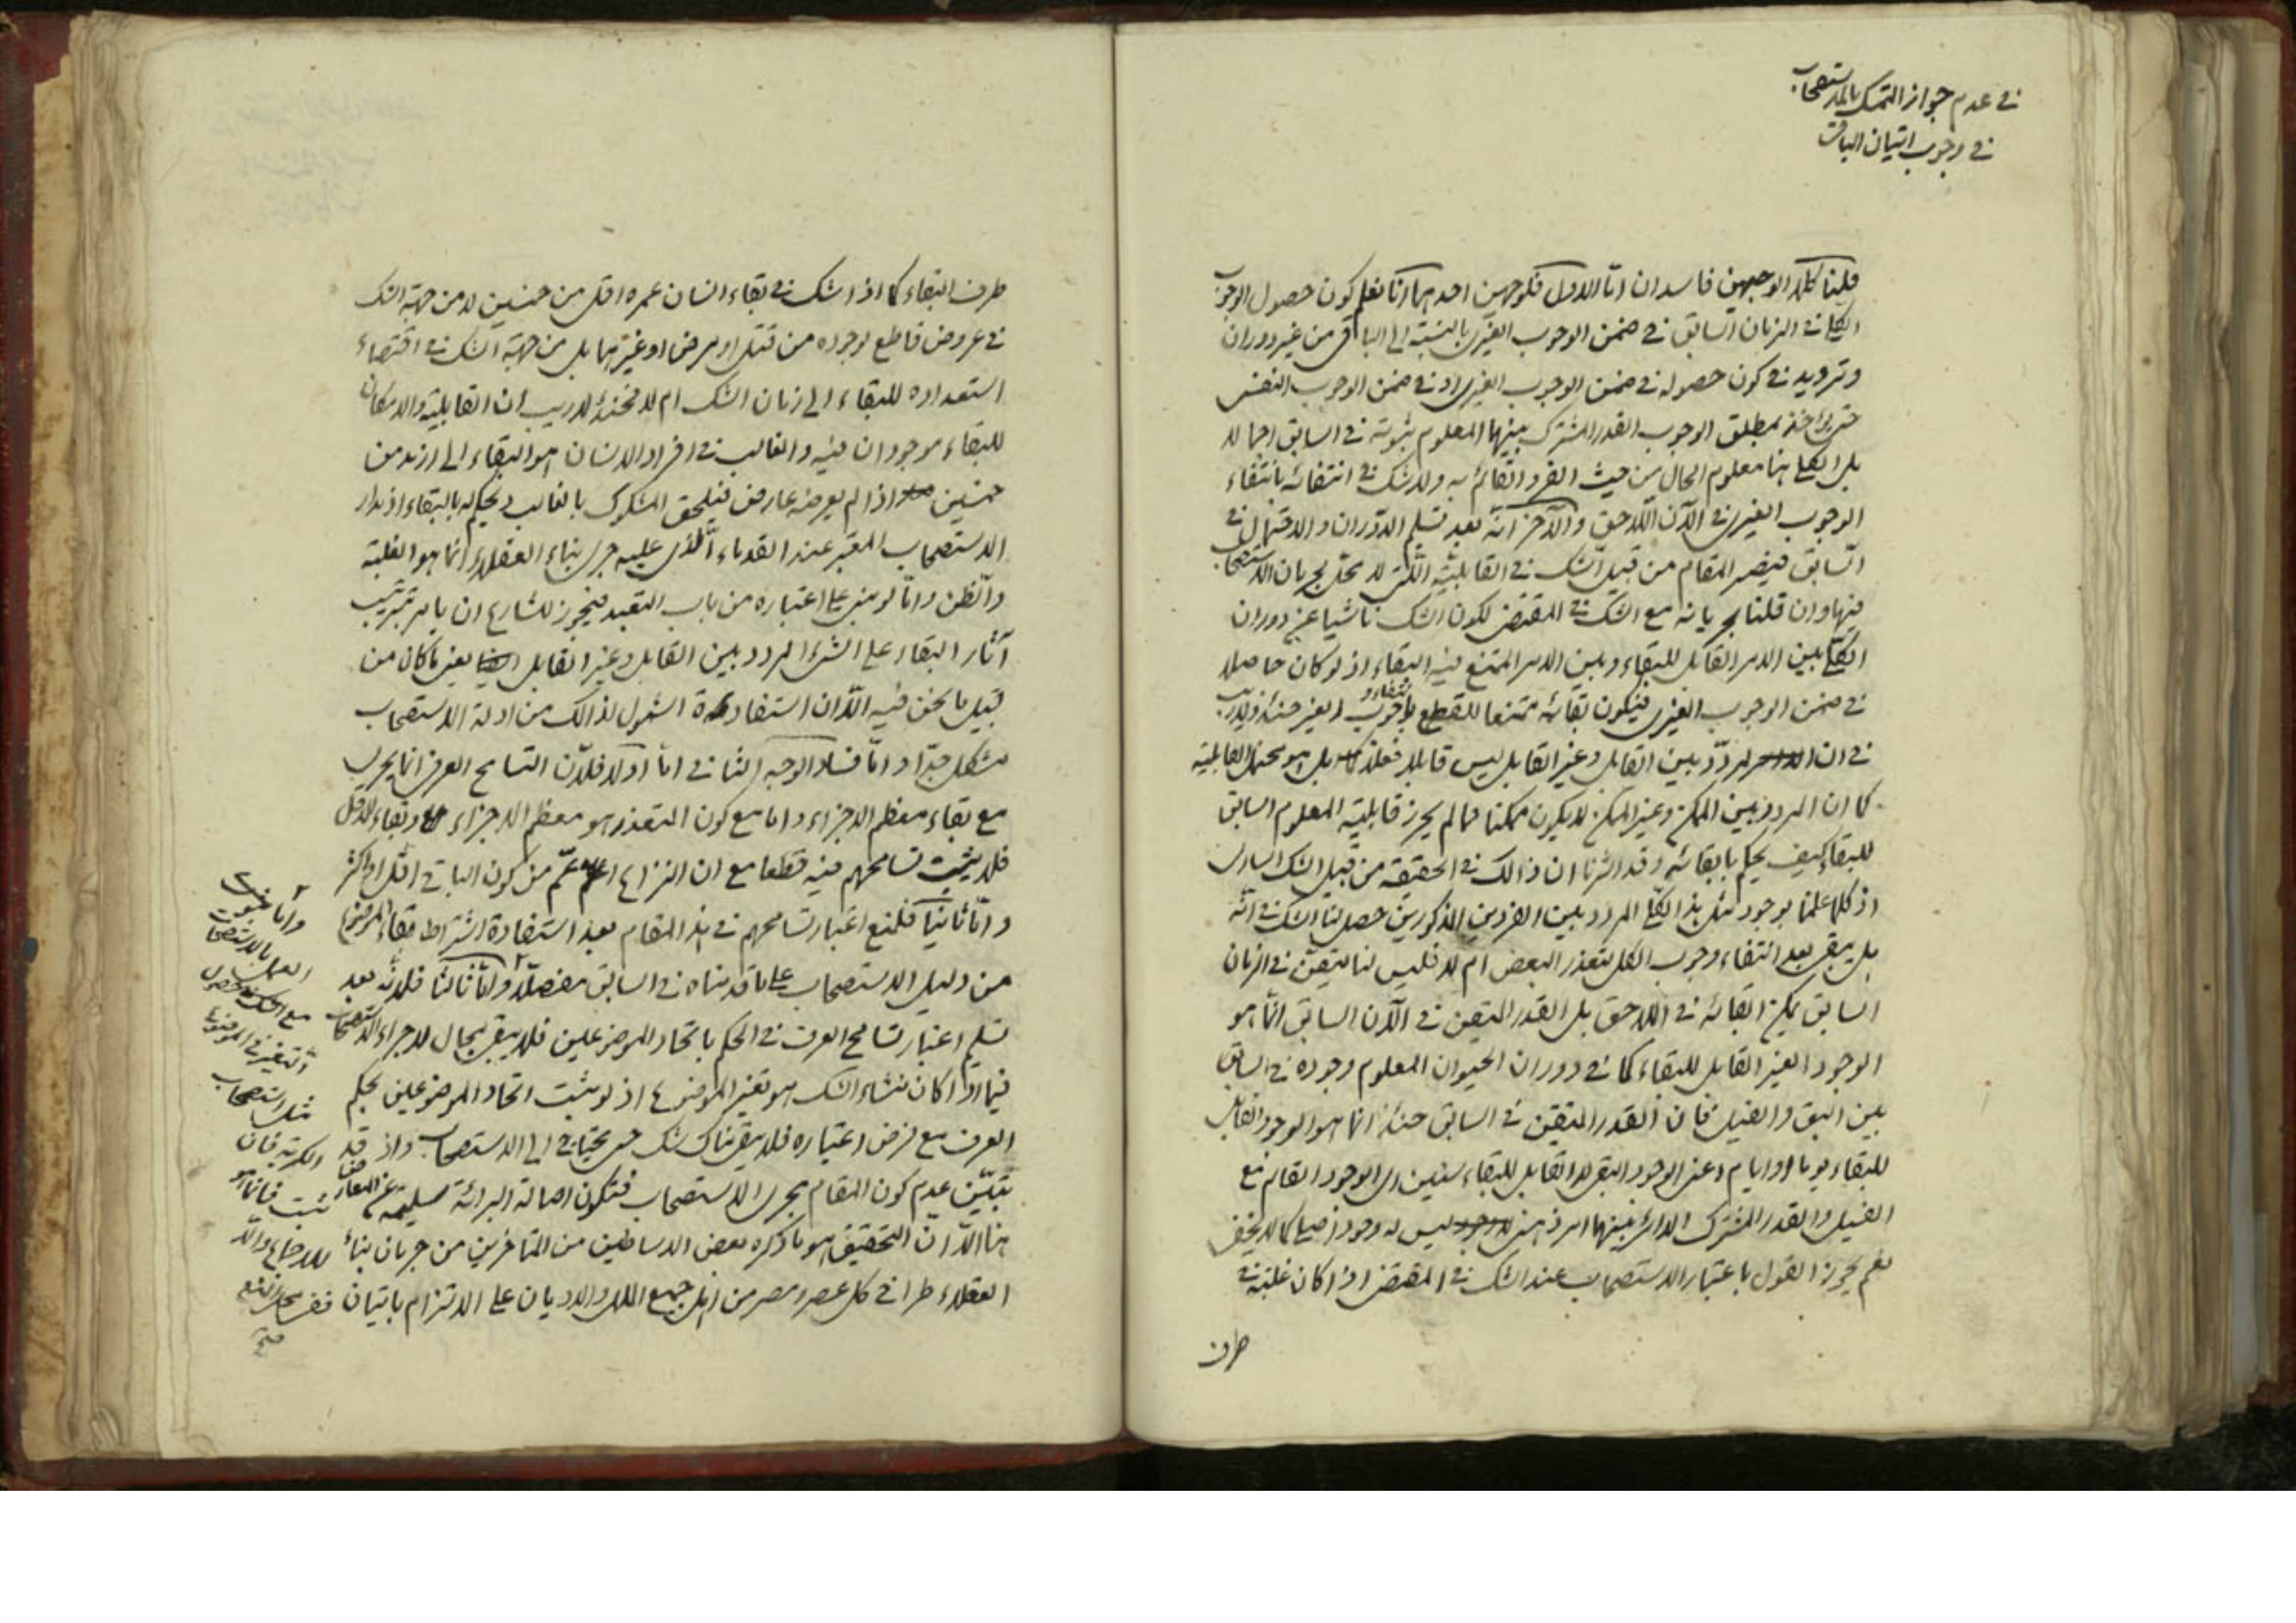 في عدم جواز التمسك بالاستصحاب
في وجوب اتيان الباقي
قلنا كلا الوجهين فاسدان اما الاول فلوجهين احدهما انا نعلم كون حصول الوجوب
الكلي في الزمان السابق في ضمن الوجوب الغيري بالنسبة الى الباقي من غير دوران
وترديد في كون حصوله في ضمن الوجوب الغيري او في ضمن الوجوب النفسي
حتى يؤخذ بمطلق الوجوب القدر المشترك بينهما المعلوم ثبوته في السابق اجمالا
بل الكلي هنا معلوم الحال من حيث الفرد القائم به ولا شك في انتفائه بانتفاء
الوجوب الغيري في الآن اللاحق والآخر انه بعد تسليم الدوران والاحتمال في
السابق فيصير المقام من قبيل الشك في القابلية التي لا نحتج بجريان الاستصحاب
فيها وان قلنا بجريانه مع الشك في المقتضي لكون الشك ناشيا عن دوران
الكلي بين الامر القابل للبقاء وبين الامر الممتنع فيه البقاء اذ لو كان حاصلا
في ضمن الوجوب الغيري فيكون بقائه ممتنعا للقطع بانتفاء وجوب الغير حينئذ ولا ريب
في ان المردد بين القابل وغير القابل ليس قابلا فعلا بل هو محتمل القابلية
كما ان المردد بين الممكن وغير الممكن لا يكون ممكنا فما لم يحرز قابلية المعلوم السابق
للبقاء كيف يحكم بابقائه وقد اشرنا ان ذالك في الحقيقة من قبيل الشك الساري
اذ كلما علمنا بوجود مثل هذا الكلي المردد بين الفردين المذكورين حصل لنا الشك في انه
بل يبقى بعد انتفاء وجوب الكل بتعذر البعض ام لا فليس لنا متيقن في الزمان
السابق يمكن ابقائه في اللاحق بل القدر المتيقن في الآن السابق انما هو
الوجود الغير القابل للبقاء كما في دوران الحيوان المعلوم وجوده في السابق
بين البق والفيل فان القدر المتيقن في السابق حينئذ انما هو الوجود القابل
للبقاء يوما او ايام اعني الوجود البقي لا القابل للبقاء سنين اي الوجود القائم مع
الفيل والقدر المشترك الدائر بينهما امر ذهني ليس له وجود اصلا كما لا يخفى
نعم يجوز القول باعتبار الاستصحاب عند الشك في المقتضي اذا كان غلبة في
طرف
طرف البقاء كما اذا شك في بقاء انسان عمره اقل من خمسين لا من جهة الشك
في عروض قاطع لوجوده من قتل او مرض او غيرهما بل من جهة الشك في اقتضاء
استعداده للبقاء الى زمان الشك ام لا فحينئذ لا ريب ان القابلية والامكان
للبقاء موجودان فيه والغالب في افراد الانسان هو البقاء الى ازيد من
خمسين اذا لم يعرضه عارض فيلحق المشكوك بالغالب ويحكم له بالبقاء اذ مدار
الاستصحاب المعتبر عند القدماء الذي عليه جرى بناء العقلاء انما هو الغلبة
والظن واما لو بني على اعتباره من باب التعبد فيجوز للشارع ان يامر بترتيب
آثار البقاء على الشيء المردد بين القابل وغير القابل يعني ما كان من
قبيل ما نحن فيه الا ان استفادة الشمول لذالك من ادلة الاستصحاب
مشكل جدا واما فساد الوجه الثاني اما اولا فلان التسامح العرفي انما يجري
مع بقاء معظم الاجزاء واما مع كون المتعذر هو معظم الاجزاء وبقاء الاقل
فلا يثبت تسامحهم فيه قطعا مع ان النزاع اعم من كون الباقي اقل او اكثر
واما ثانيا فلمنع اعتبار تسامحهم في هذا المقام بعد استفادة اشتراط بقاء الموضوع
من دليل الاستصحاب على ما قدمناه في السابق مفصلا واما ثالثا فلانه بعد
تسليم اعتبار تسامح العرف في الحكم باتحاد الموضوعين فلا يبقى مجال لاجراء الاستصحاب
فيما اذا كان منشاء الشك هو تغير الموضوع اذ لو ثبت اتحاد الموضوعين بحكم
العرف مع فرض اعتباره فلا يبقى هناك شك حتى يحتاج الى الاستصحاب واذ قد
تبين عدم كون المقام مجرى الاستصحاب فتكون اصالة البرائة سليمة عن المعارض
هنا الا ان التحقيق هو ما ذكره بعض الاساطين من المتاخرين من جريان بناء
العقلاء طرا في كل عصر ومصر من اهل جميع الملل والاديان على الالتزام باتيان
واما ثبوت
العمل بالاستصحاب
مع الشك في حصول
التغير في الموضوع
مثل استصحاب
الكرية فان
ثبت فانما هو
للاجماع والا
ففي محل المنع
صح